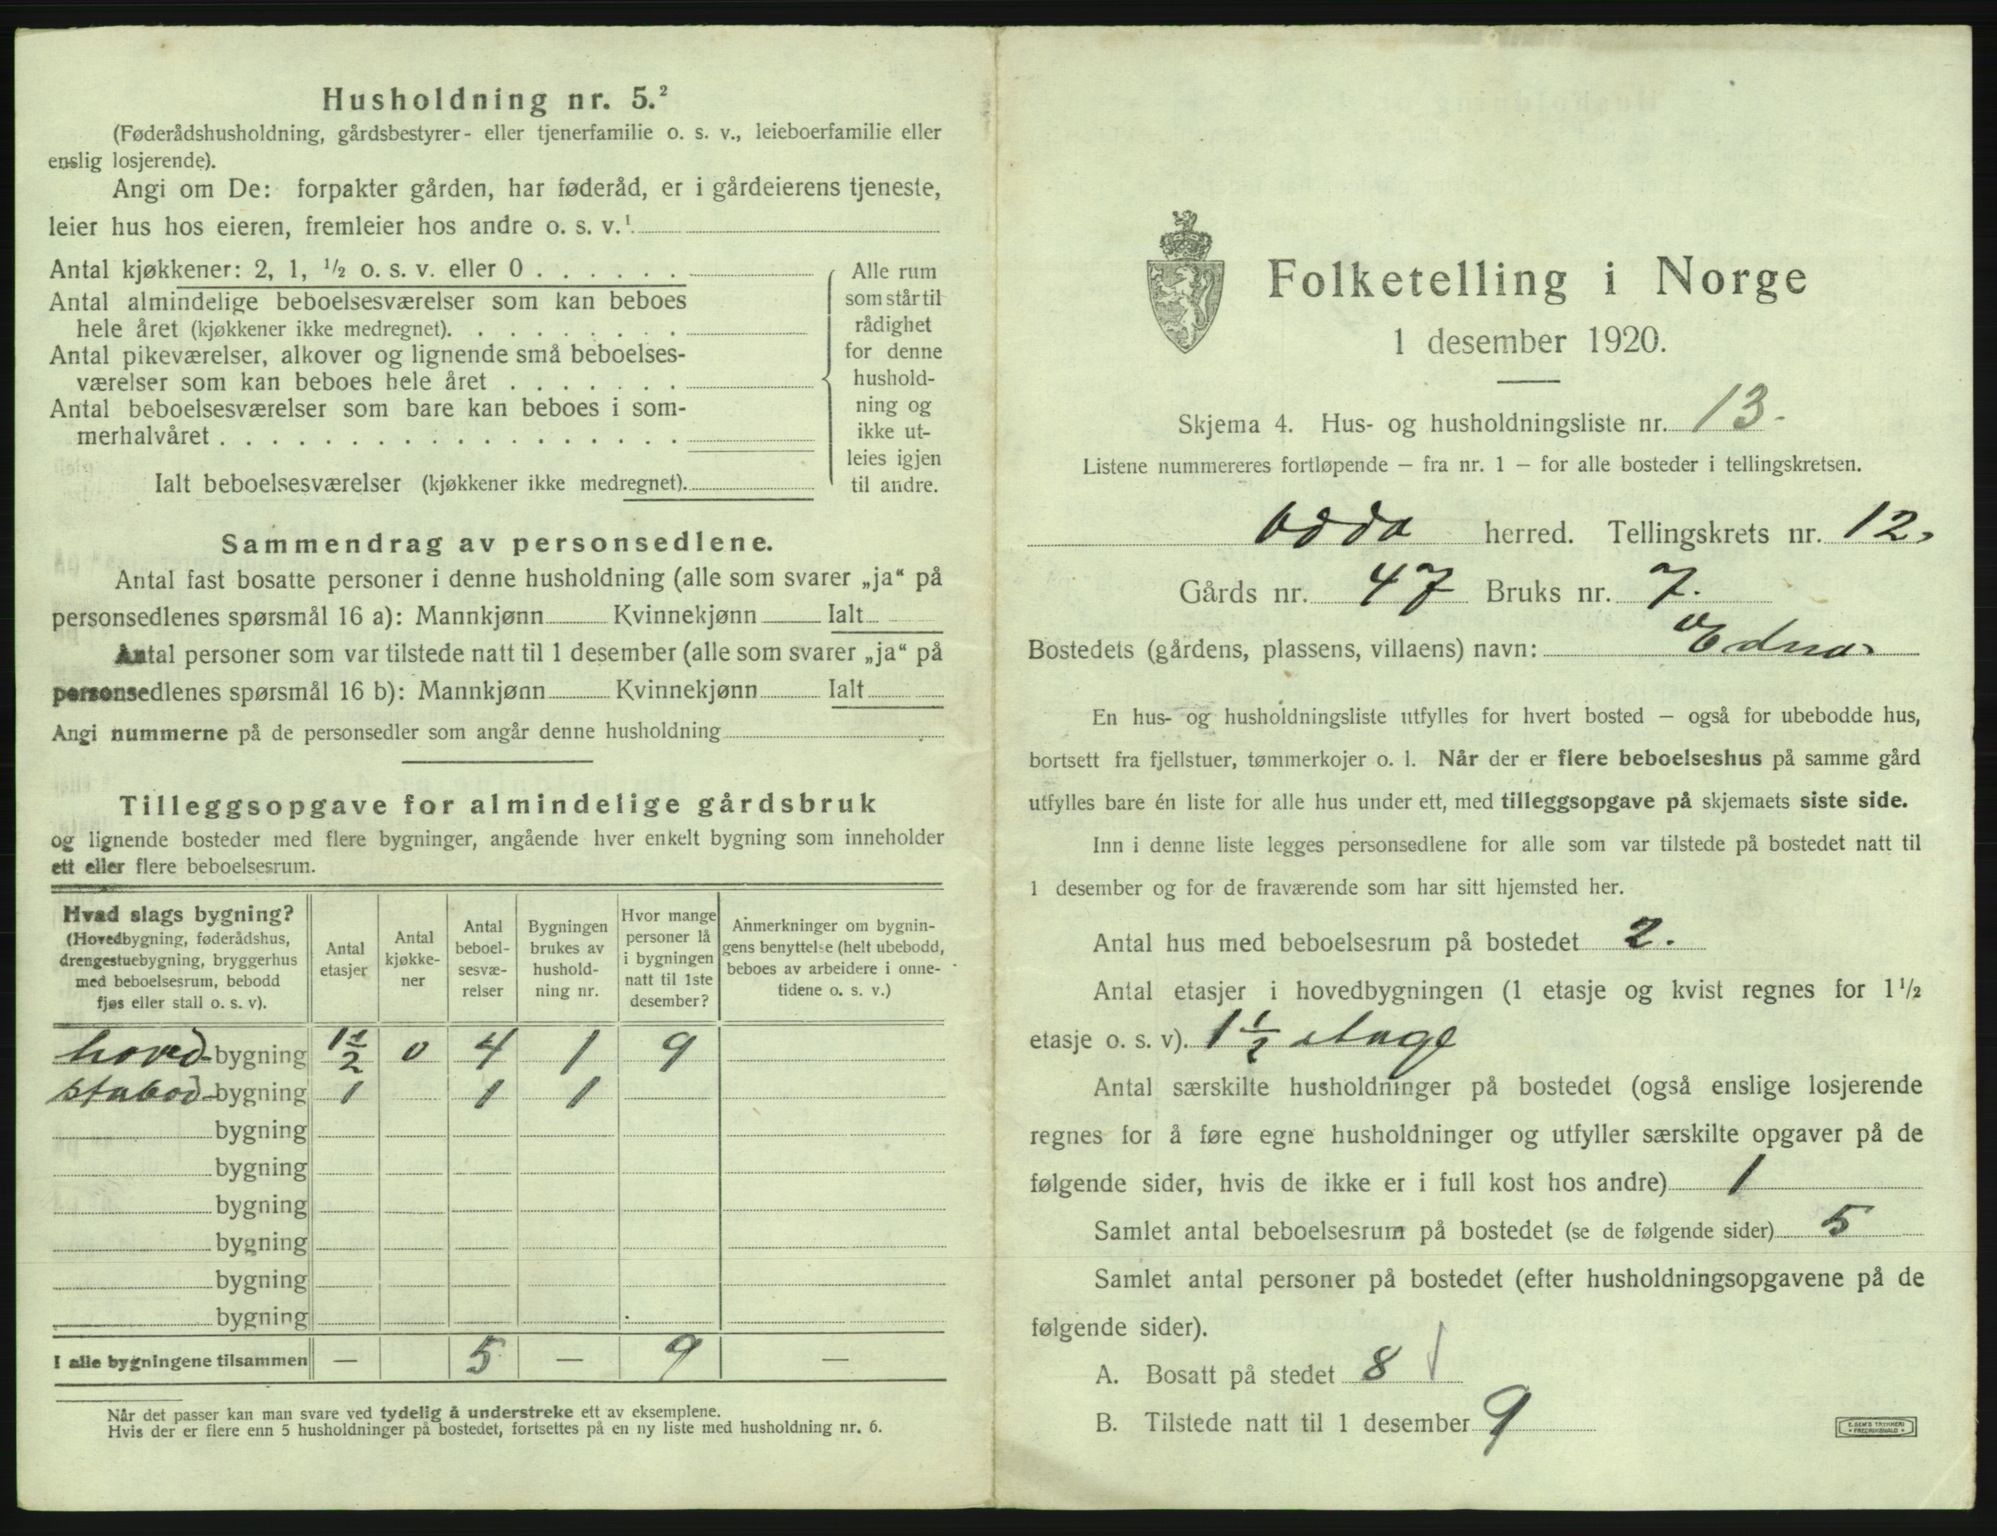 Husholdning nr. 5.²
(Føderådshusholdning, gårdsbestyrer- eller tjenerfamilie o. s. v., leieboerfamilie eller
enslig losjerende).
Angi om De: forpakter gården, har føderåd, er i gårdeierens tjeneste,
leier hus hos eieren, fremleier hos andre o. s. v.¹
Antal kjøkkener: 2, 1, ½ o. s. v. eller 0 . . . . . .
Antal almindelige beboelsesværelser som kan beboes
hele året (kjøkkener ikke medregnet). . . . . . . . .
Antal pikeværelser, alkover og lignende små beboelses-
værelser som kan beboes hele året . . . . . . .
Antal beboelsesværelser som bare kan beboes i som-
merhalvåret . . . . . . . . . . . . . . . . . .
Ialt beboelsesværelser (kjøkkener ikke medregnet).
Alle rum
som står til
rådighet
for denne
hushold-
ning og
ikke ut-
leies igjen
til andre.
Sammendrag av personsedlene.
Antal fast bosatte personer i denne husholdning (alle som svarer „ja“ på
personsedlenes spørsmål 16 a): Mannkjønn Kvinnekjønn Ialt
Antal personer som var tilstede natt til 1 desember (alle som svarer „ja“ på
personsedlenes spørsmål 16 b): Mannkjønn Kvinnekjønn Ialt
Angi nummerne på de personsedler som angår denne husholdning
Tilleggsopgave for almindelige gårdsbruk
og lignende bosteder med flere bygninger, angående hver enkelt bygning som inneholder
ett eller flere beboelsesrum.
Hvad slags bygning?
(Hovedbygning, føderådshus,
drengestuebygning, bryggerhus
med beboelsesrum, bebodd
fjøs eller stall o. s. v).
Antal
etasjer
Antal
kjøkke-
ner
Antal
beboel-
sesvæ-
relser
Bygningen
brukes av
hushold-
ning nr.
Hvor mange
personer lå
i bygningen
natt til 1ste
desember?
Anmerkninger om bygnin-
gens benyttelse (helt ubebodd,
beboes av arbeidere i onne-
tidene o. s. v.)
hoved-bygning 1½ 0 4 1 9
stabod-bygning 1 1 1
bygning
bygning
bygning
bygning
bygning
bygning
I alle bygningene tilsammen — 5 — 9 —
Når det passer kan man svare ved tydelig å understreke ett av eksemplene.
Hvis der er flere enn 5 husholdninger på bostedet, fortsettes på en ny liste med husholdning nr. 6.
Folketelling i Norge
1 desember 1920.
Skjema 4. Hus- og husholdningsliste nr. 13.
Listene nummereres fortløpende – fra nr. 1 – for alle bosteder i tellingskretsen.
Odda herred. Tellingskrets nr. 12.
Gårds nr. 47 Bruks nr. 7.
Bostedets (gårdens, plassens, villaens) navn: Edna
En hus- og husholdningsliste utfylles for hvert bosted – også for ubebodde hus,
bortsett fra fjellstuer, tømmerkojer o. l. Når der er flere beboelseshus på samme gård
utfylles bare én liste for alle hus under ett, med tilleggsopgave på skjemaets siste side.
Inn i denne liste legges personsedlene for alle som var tilstede på bostedet natt til
1 desember og for de fraværende som har sitt hjemsted her.
Antal hus med beboelsesrum på bostedet 2.
Antal etasjer i hovedbygningen (1 etasje og kvist regnes for 1½
etasje o. s. v). 1½ etage
Antal særskilte husholdninger på bostedet (også enslige losjerende
regnes for å føre egne husholdninger og utfyller særskilte opgaver på de
følgende sider, hvis de ikke er i full kost hos andre) 1
Samlet antal beboelsesrum på bostedet (se de følgende sider) 5
Samlet antal personer på bostedet (efter husholdningsopgavene på de
følgende sider).
A. Bosatt på stedet 8
B. Tilstede natt til 1 desember 9
E. SEM'S TRYKKERI
FREDRIKSHALD